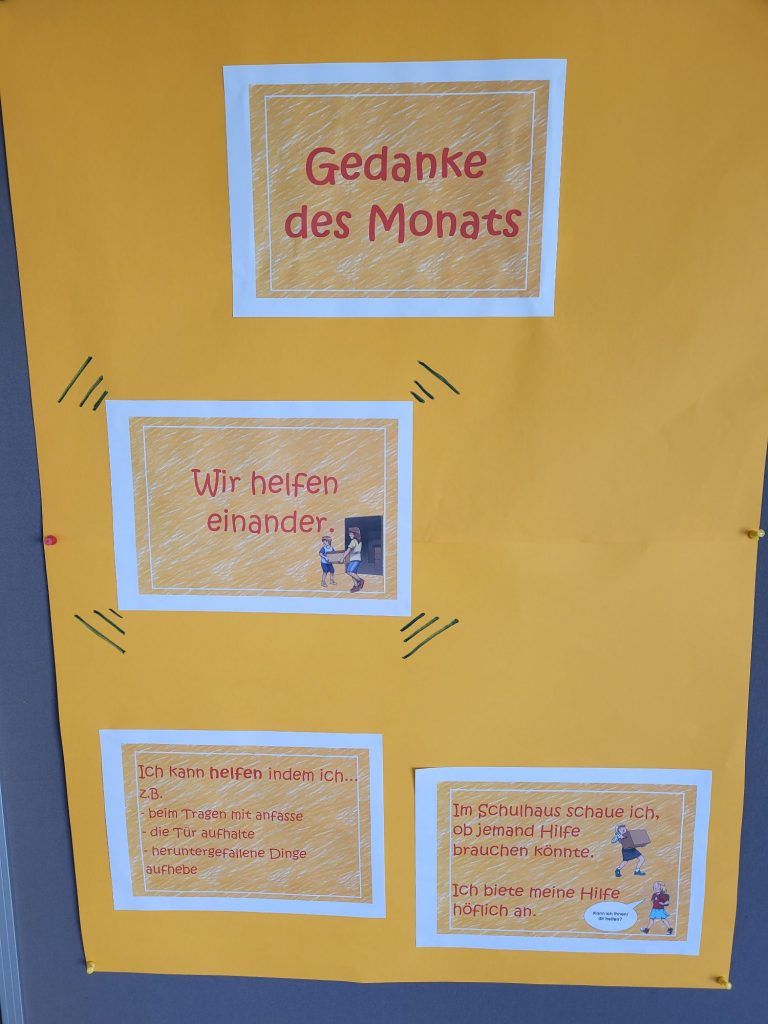 Gedanke
des Monats
Wir helfen
einander.
Ich kann helfen indem ich...
z.B.
- beim Tragen mit anfasse
- die Tür aufhalte
- heruntergefallene Dinge
aufhebe
Im Schulhaus schaue ich,
ob jemand Hilfe
brauchen könnte.
Ich biete meine Hilfe
höflich an.
Kann ich Ihnen/
dir helfen?